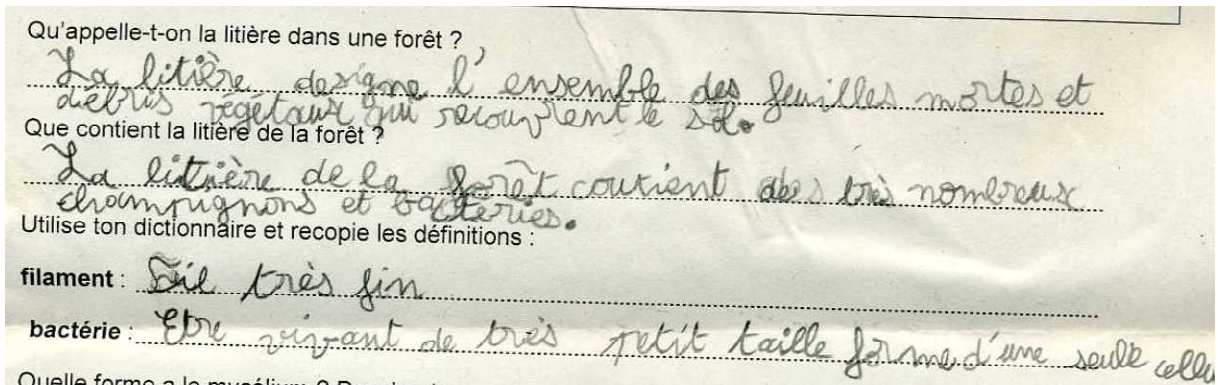 Qu'appelle-t-on la litière dans une forêt ?
La litière designe l'ensemble des feuilles mortes et
débris végétaux qui recouvrent le sol.
Que contient la litière de la forêt ?
La litnière de la forêt coutient des très nombreux
champignons et bactéries.
Utilise ton dictionnaire et recopie les définitions :
filament : Fil très fin
bactérie : Etre vivant de très petit taille forme d'une seule cellu
Quelle forme a le mycélium ?